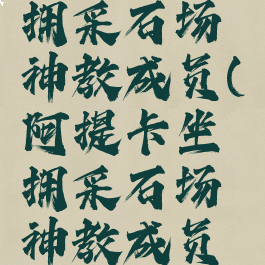 掤采石场
神教成员(
阿提卡坐
掤采石场
神教成员